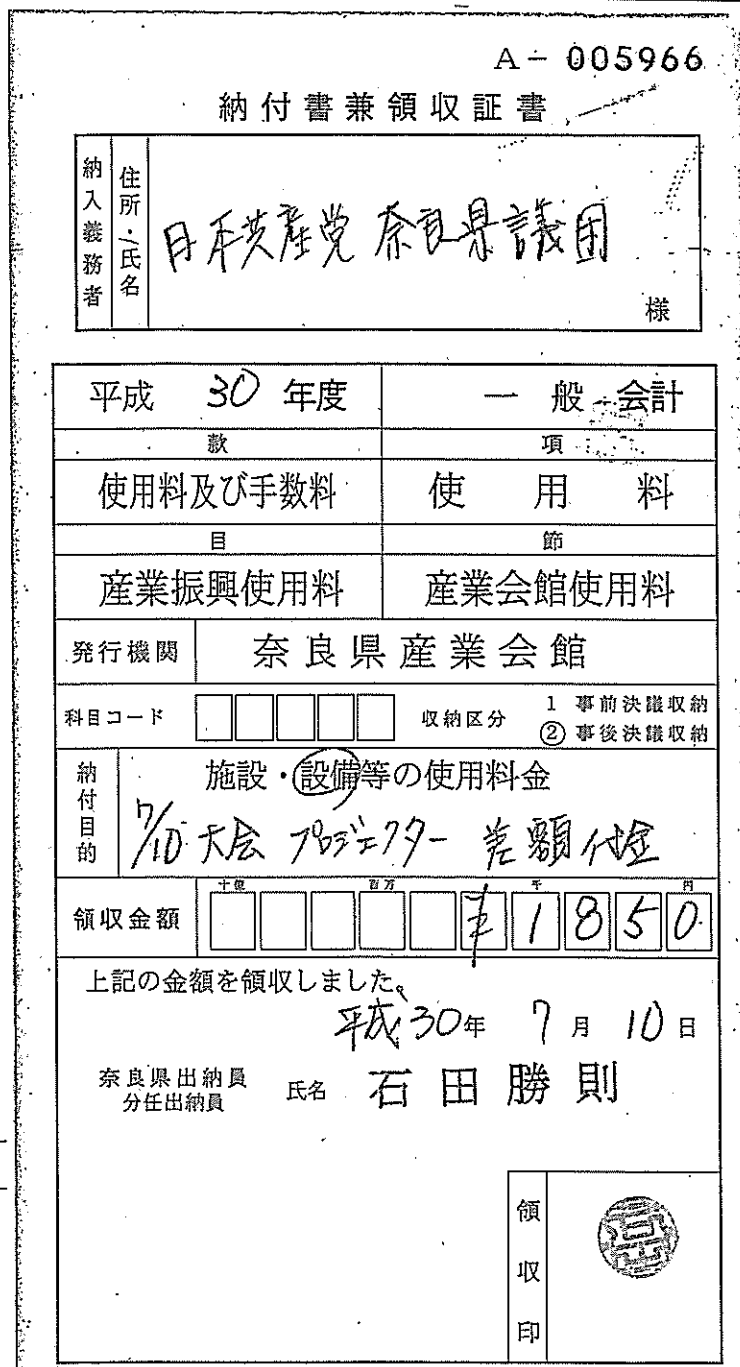 A－005966
納付書兼領収証書
納入義務者
住所・氏名
日本共産党 奈良県議団
様
平成 30 年度 一般会計
款 項
使用料及び手数料 使用料
目 節
産業振興使用料 産業会館使用料
発行機関 奈良県産業会館
科目コード 収納区分 1 事前決議収納
② 事後決議収納
納付目的
施設・設備等の使用料金
7/10 大会 プロジェクター 差額代金
十億 百万 千 円
領収金額 ¥1850
上記の金額を領収しました。
平成 30年 7月 10日
奈良県出納員
分任出納員 氏名 石田勝則
領収印